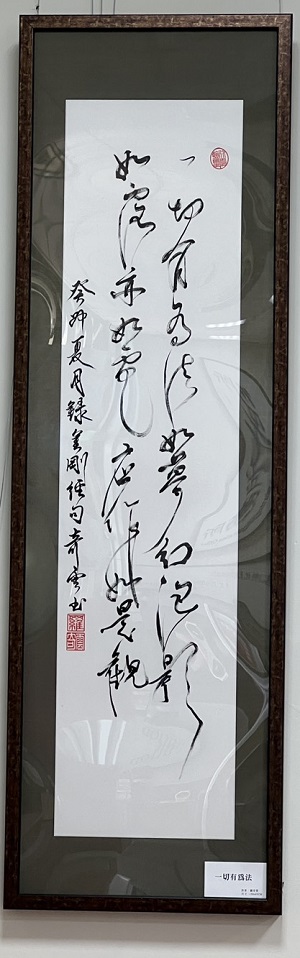 一切有為法如夢幻泡影
如露亦如電應作如是觀
癸卯夏月錄金剛經句奇雲书
一切有爲法